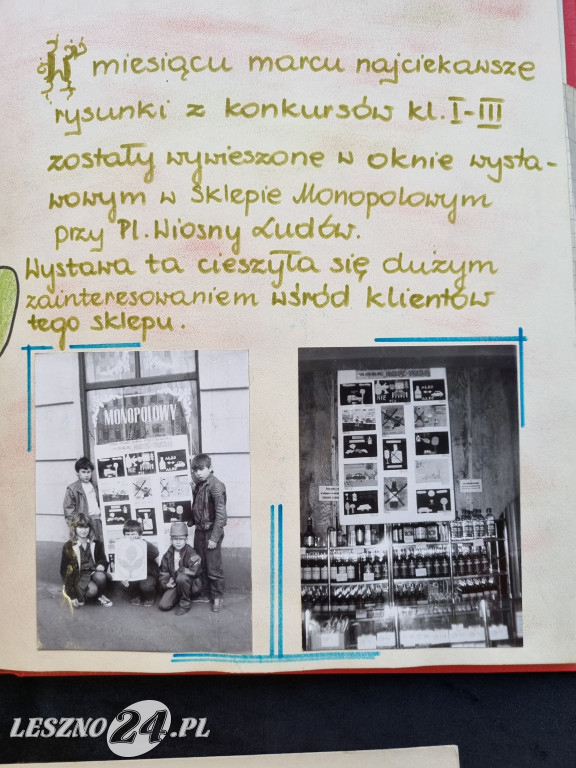 W miesiącu marcu najciekawsze
rysunki z konkursów kl. I-III
zostały wywieszone w oknie wysta-
wowym w Sklepie Monopolowym
przy Pl. Wiosny Ludów.
Wystawa ta cieszyła się dużym
zainteresowaniem wśród klientów
tego sklepu.
MONOPOLOWY
LESZNO24.PL